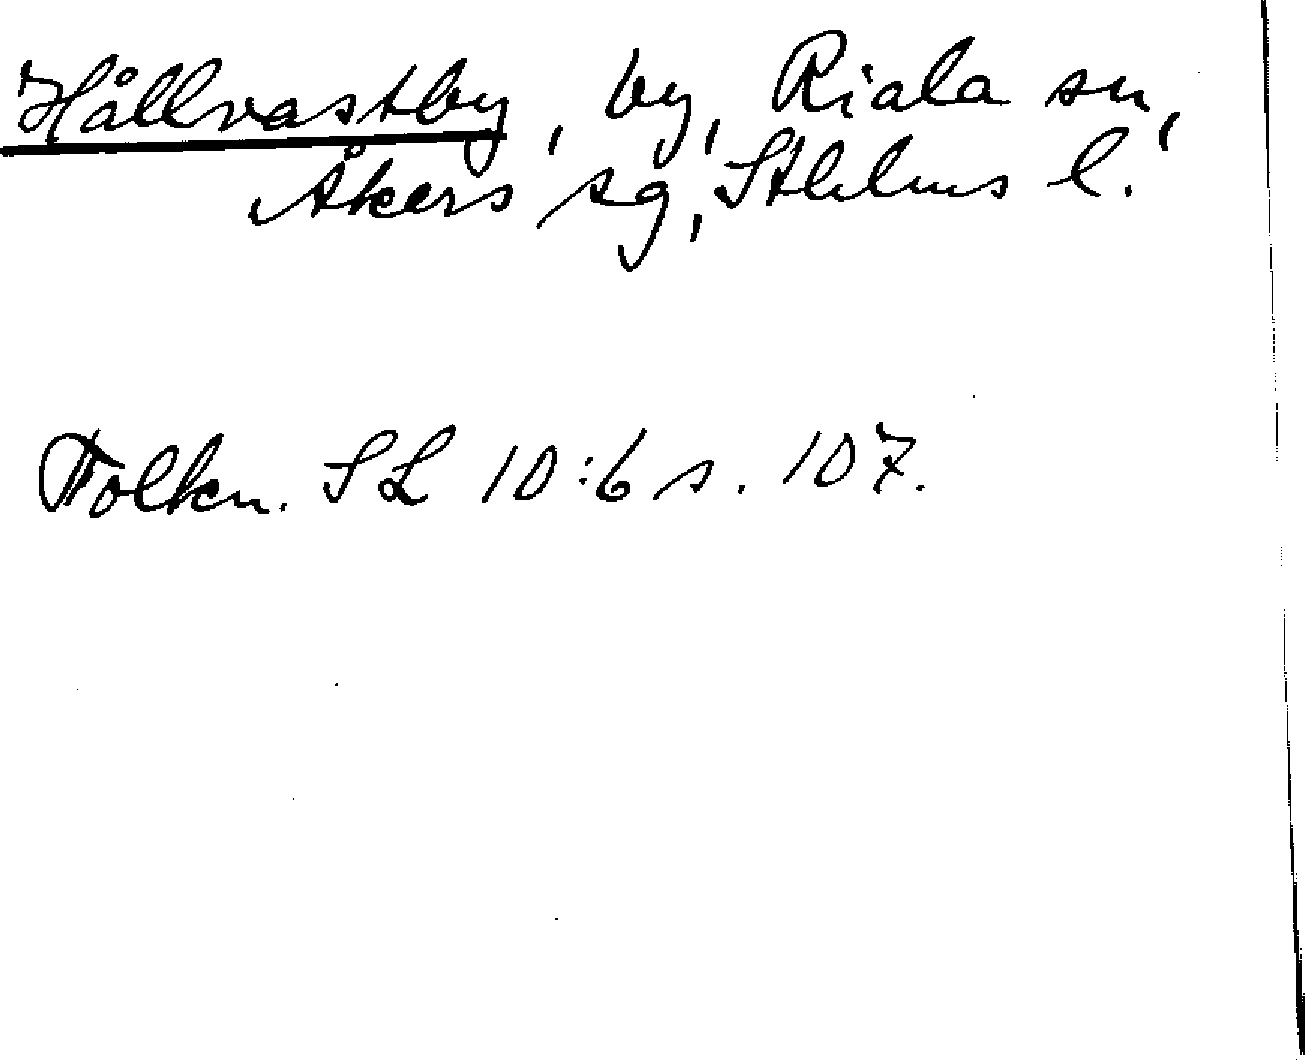 Hållvastby, by, Riala sn,
Åkers sg, Sthlms l.
Folkn. SL 10:6 s. 107.